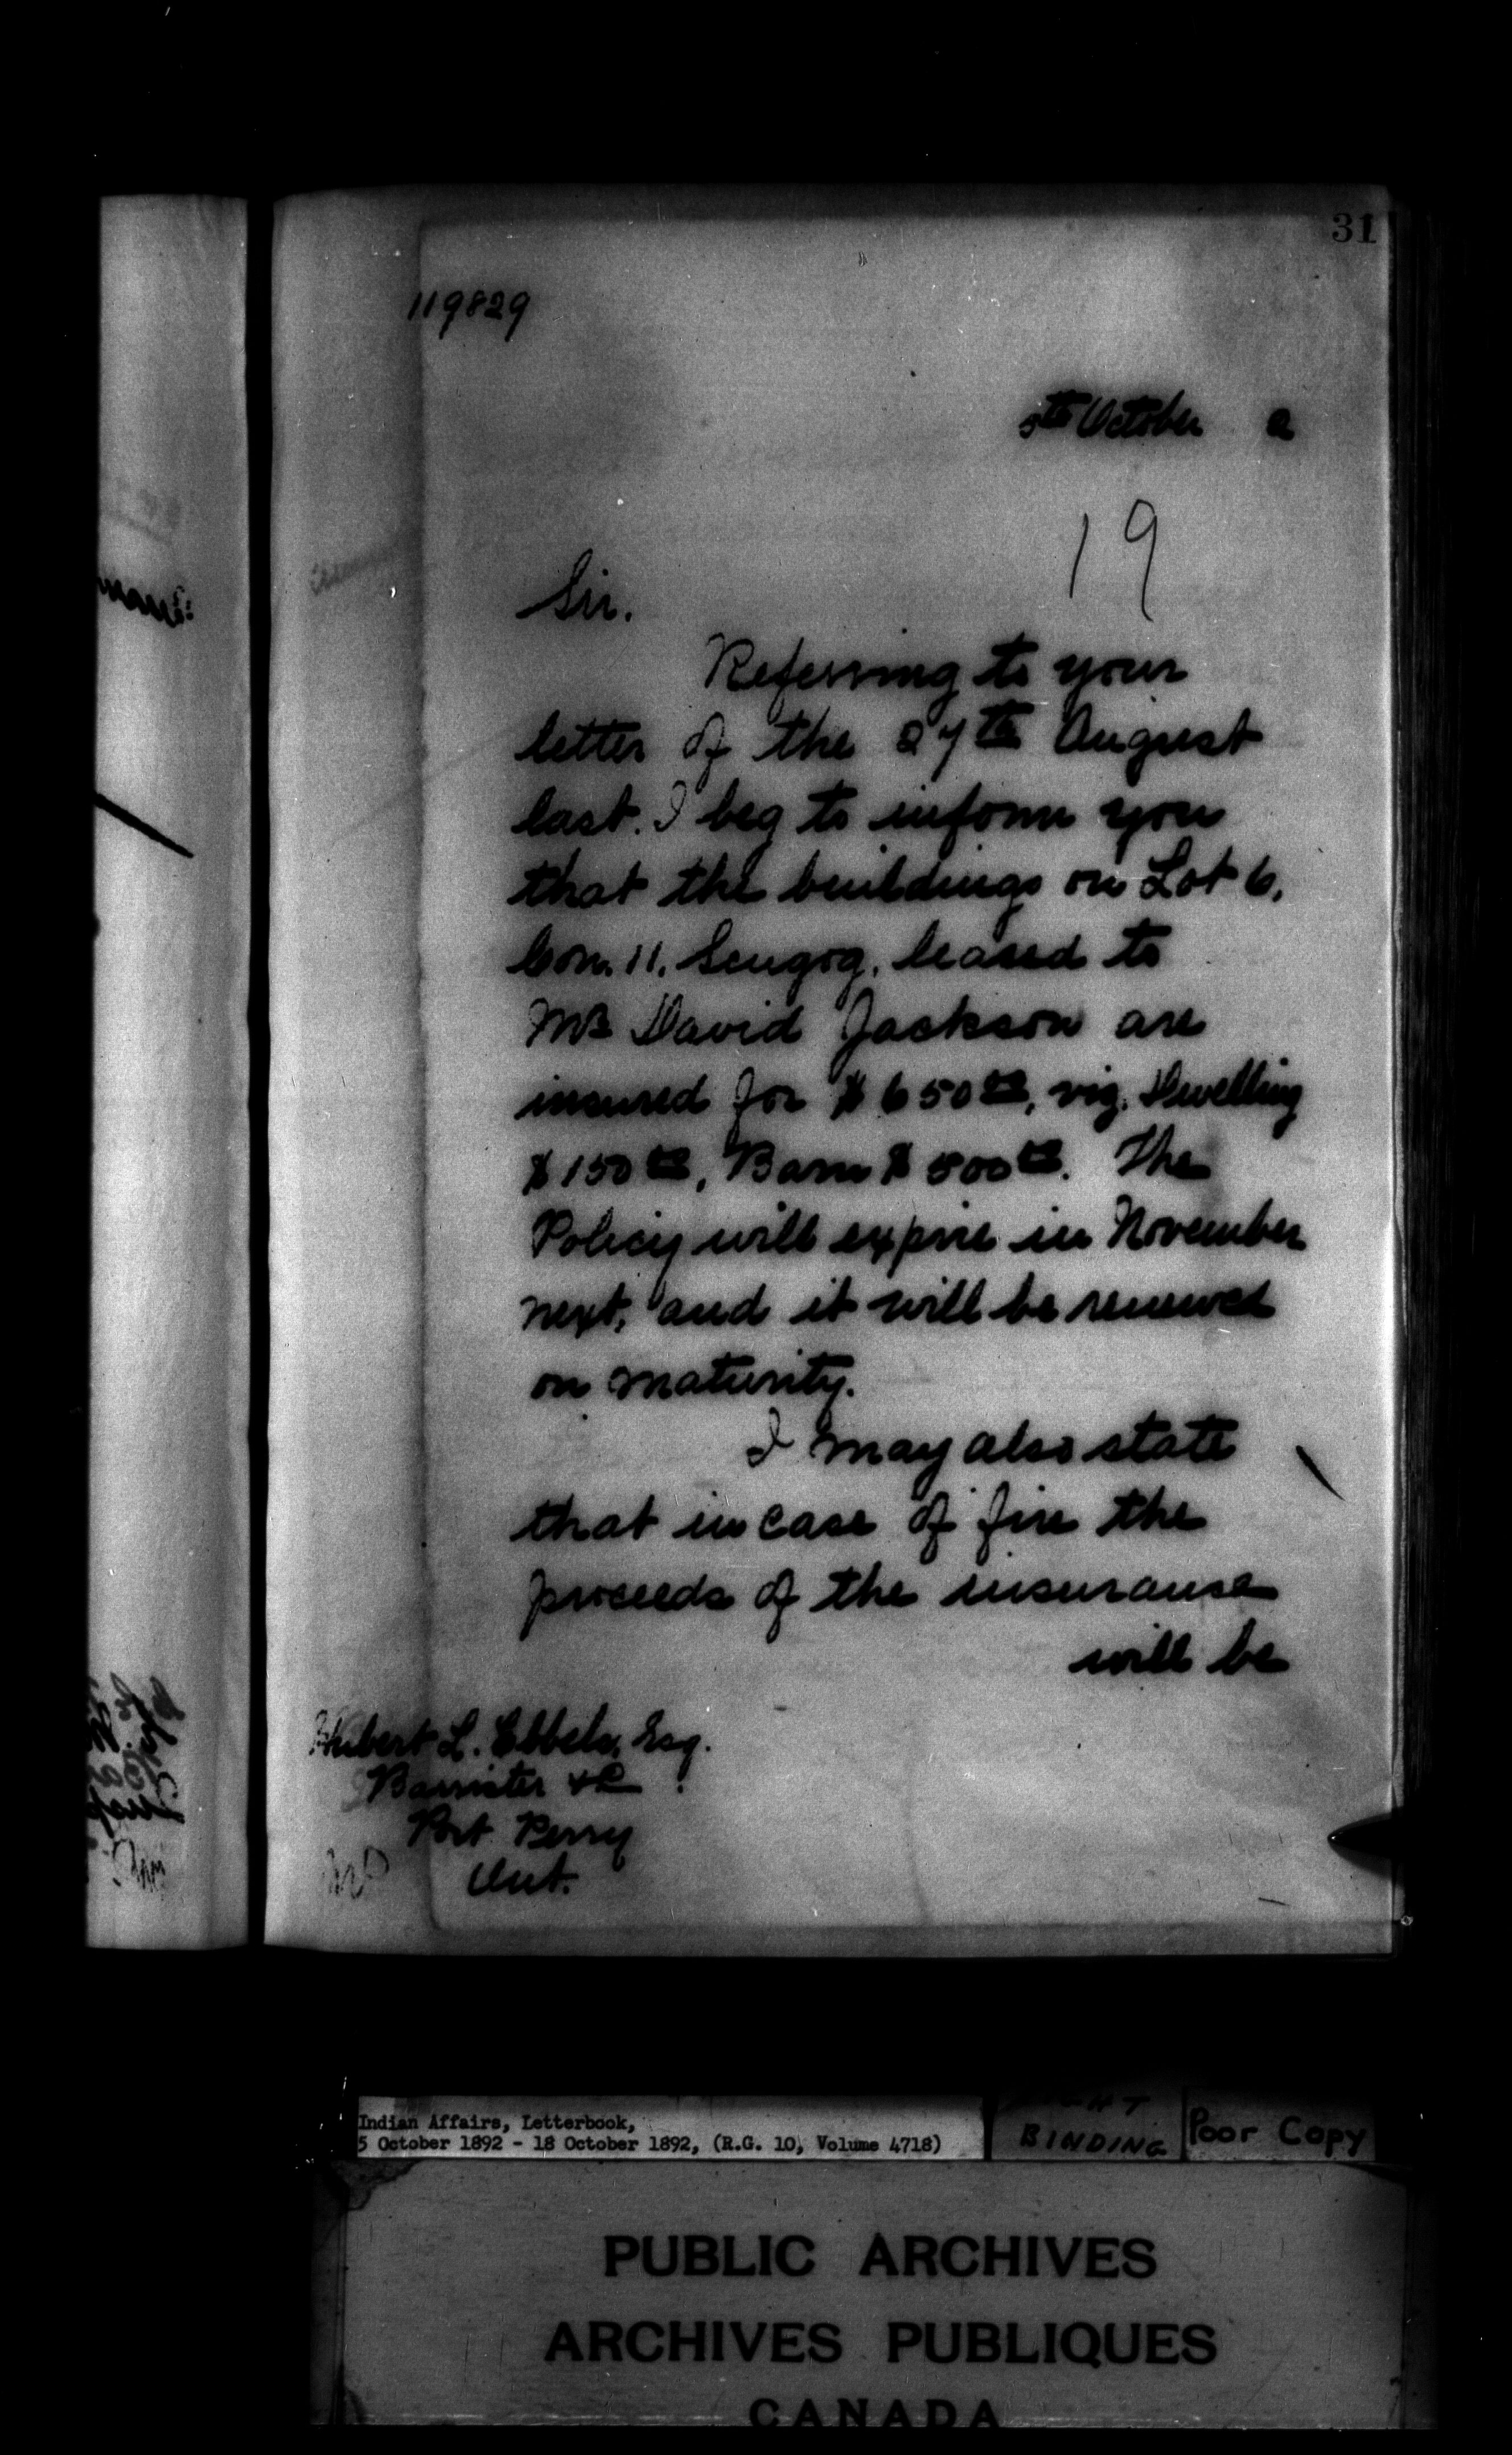 31
119829
5th October 2
19
Sir.
Referring to your
letter of the 27th August
last. I beg to inform you
that the buildings on Lot 6,
Con. 11, Scugog, leased to
Mr David Jackson are
insured for $650 00, viz. Dwelling
$150 00, Barn $500 00. The
Policy will expire in November
next, and it will be renewed
on maturity.
I may also state
that in case of fire the
proceeds of the insurance
will be
Hubert L. Ebbels, Esq.
Barrister &c
Port Perry
Ont.
Indian Affairs, Letterbook,
5 October 1892 - 18 October 1892, (R.G. 10, Volume 4718)
BINDING
Poor Copy
PUBLIC ARCHIVES
ARCHIVES PUBLIQUES
CANADA